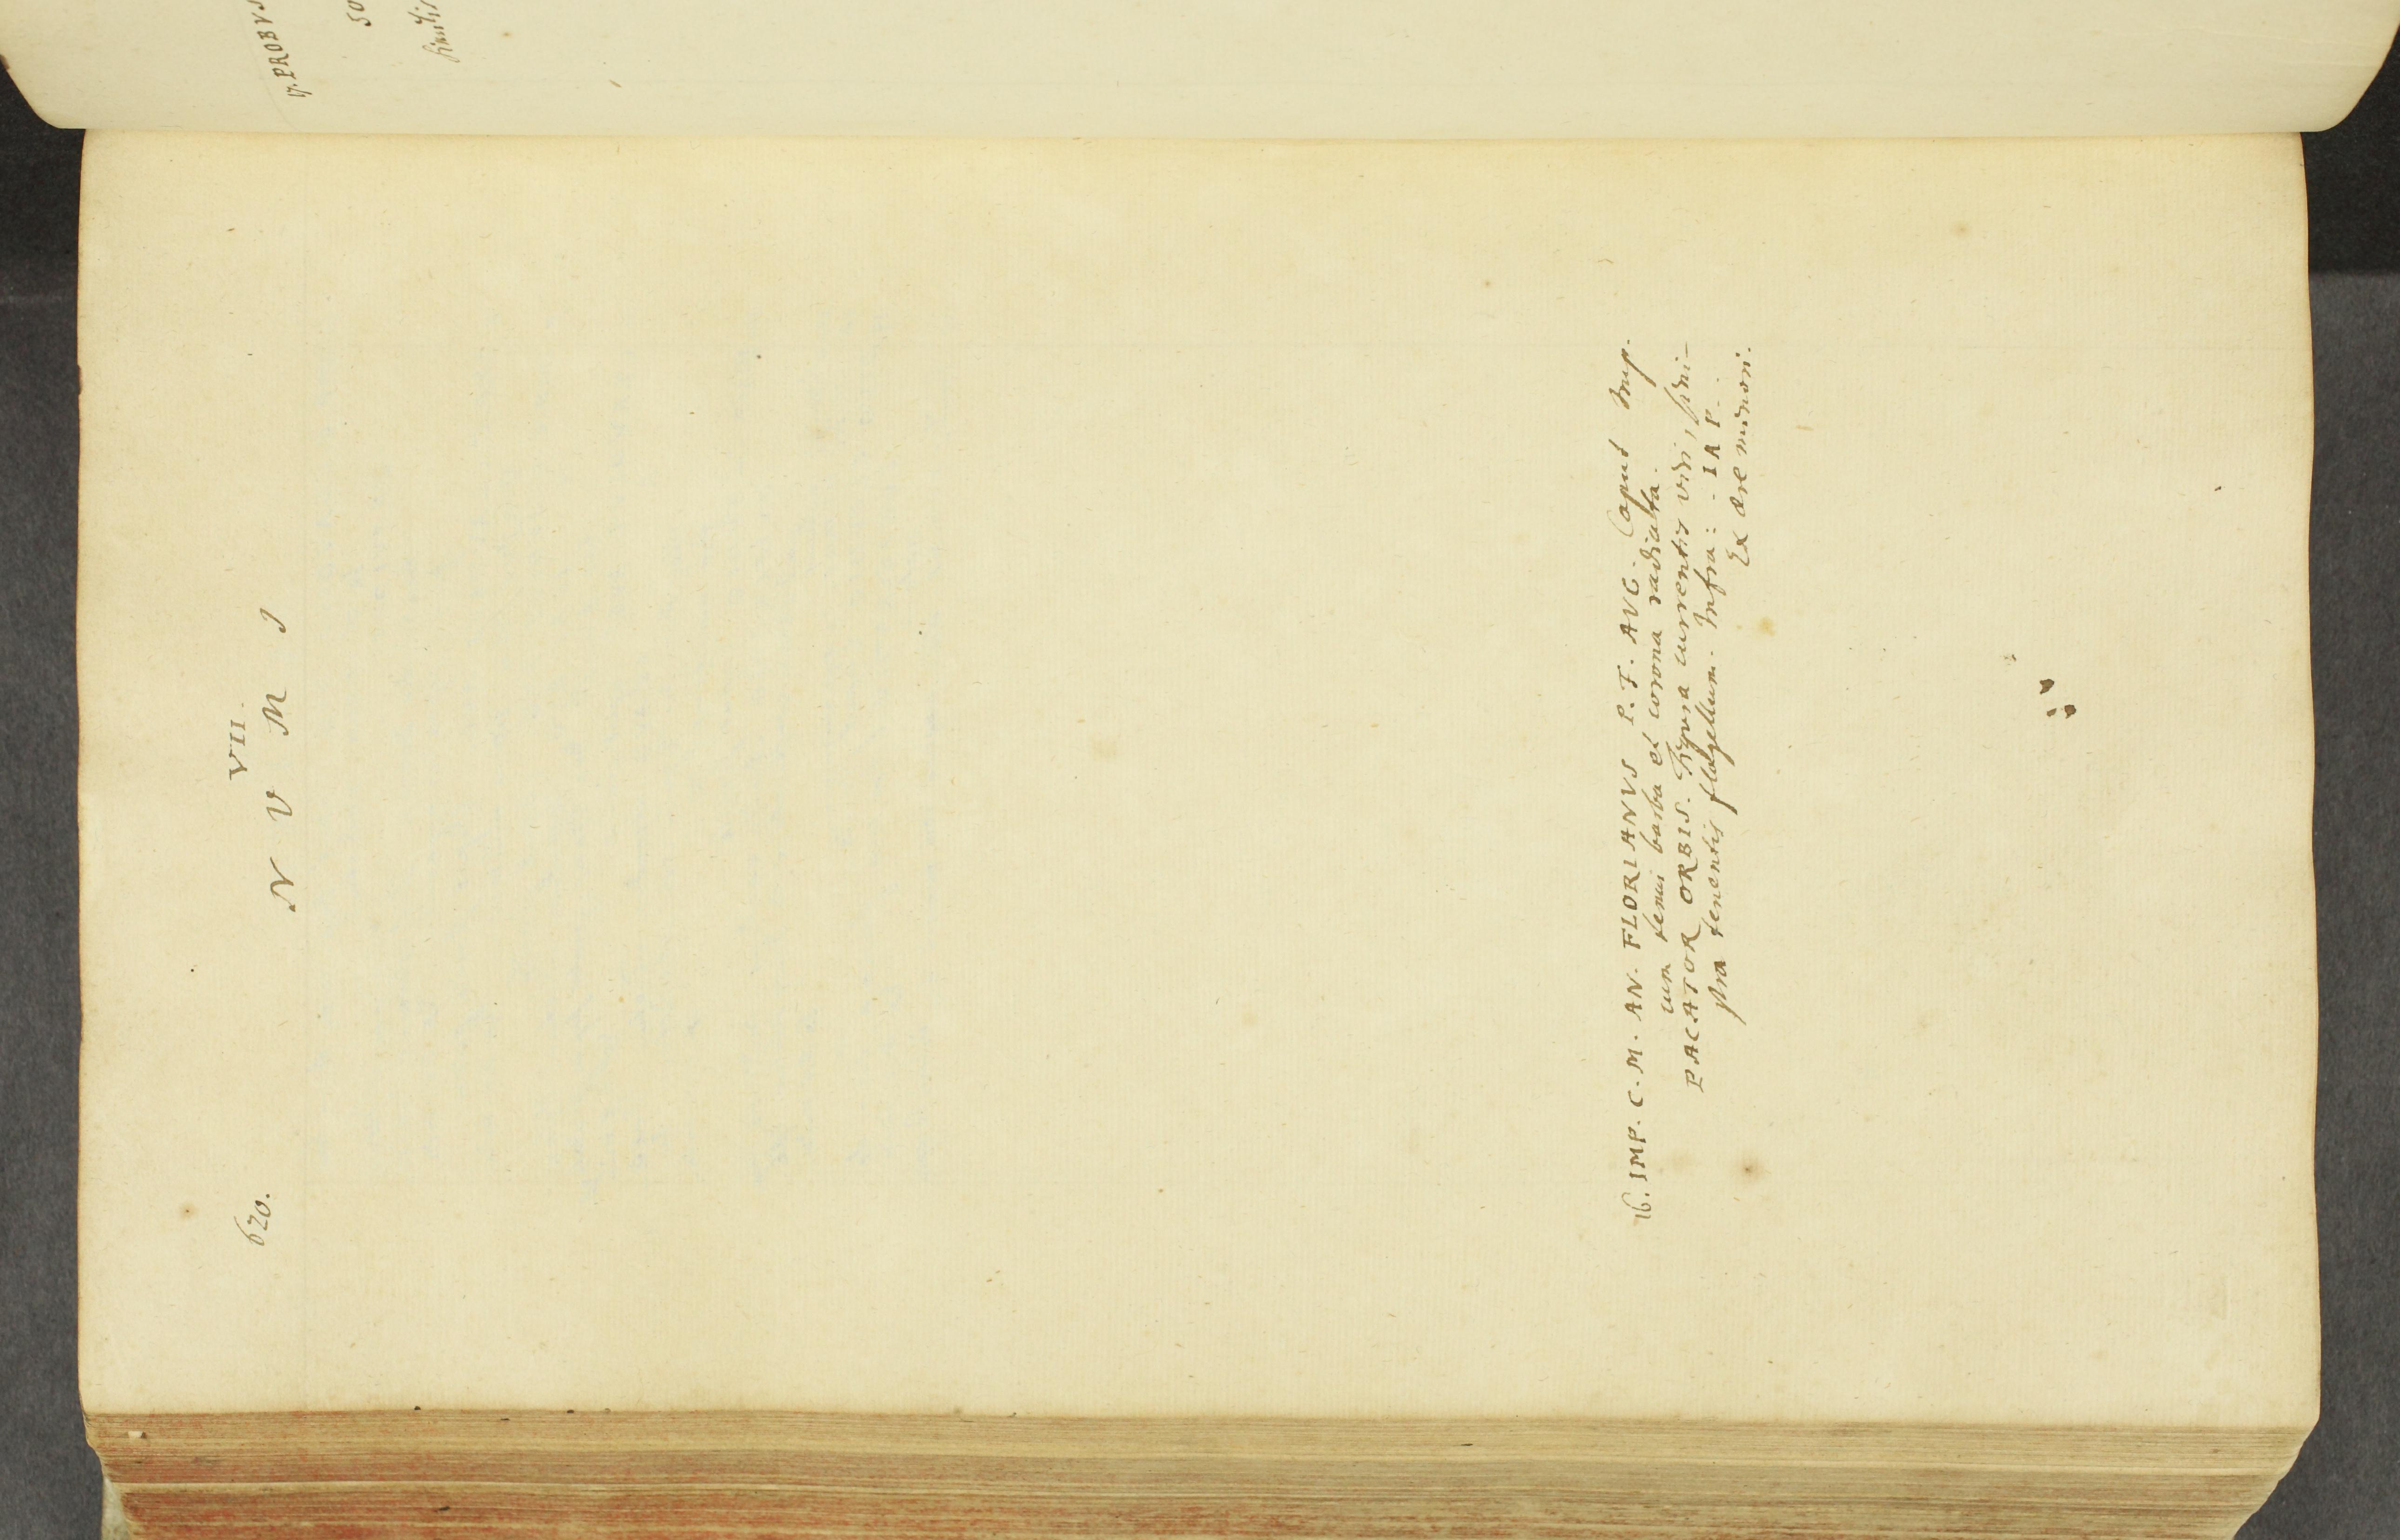 620.
VII.
N V M I
16. IMP. C. M. AN. FLORIANVS P. F. AVG. Caput Imp.
cum tenui barba et corona radiata.
PACATOR ORBIS. Figura currentis viri, sini-
stra tenentis flagellum. Infra: - IAP.
Ex aere minori.
17. PROBVS
50